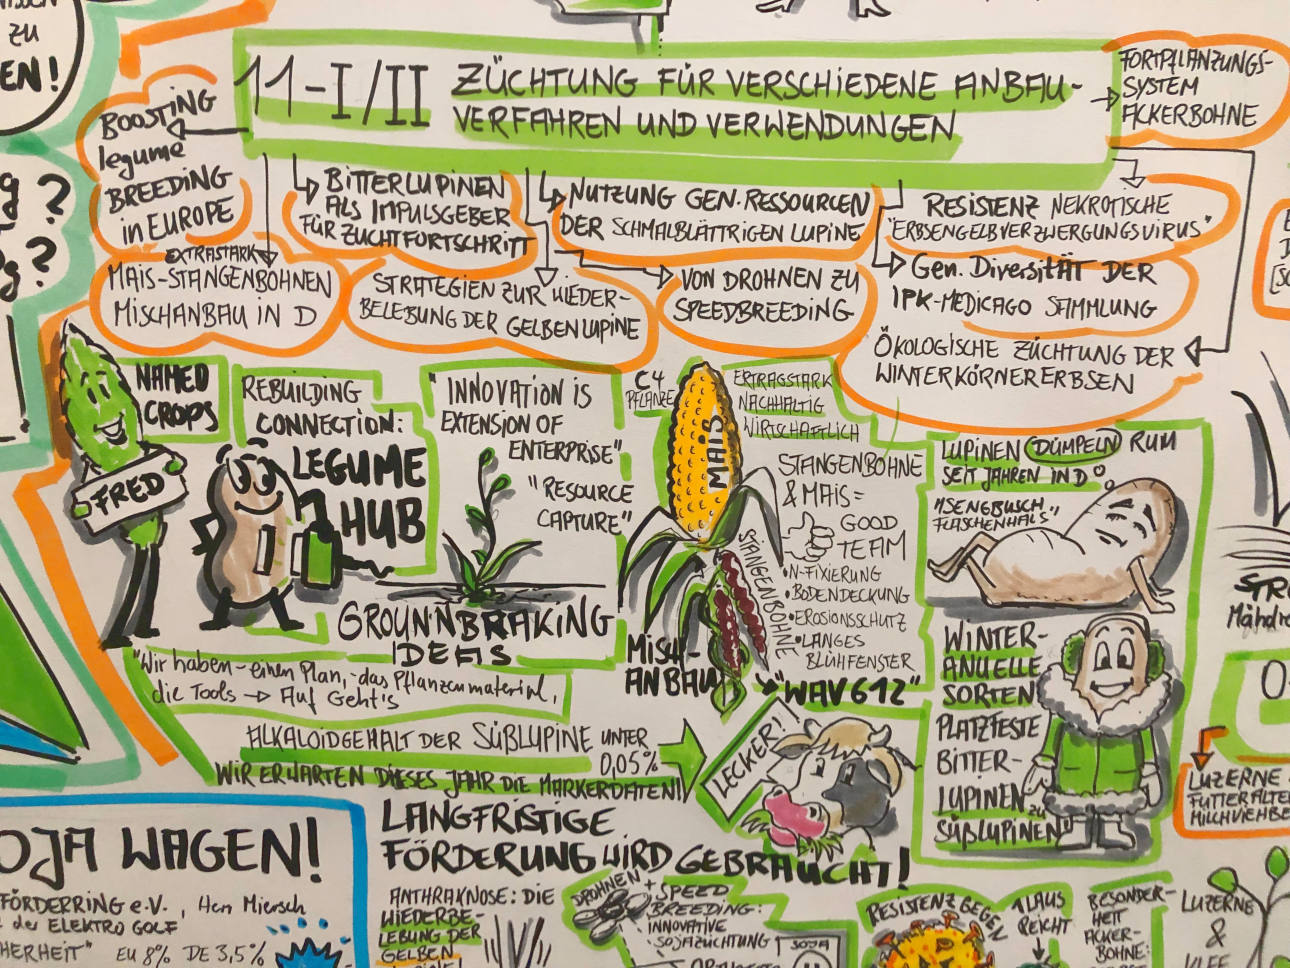 ZU
EN!
11-I/II
ZÜCHTUNG FÜR VERSCHIEDENE ANBAU-
VERFAHREN UND VERWENDUNGEN
FORTPFLANZUNGS-
SYSTEM
ACKERBOHNE
BOOSTING
legume
BREEDING
in EUROPE
BITTERLUPINEN
ALS IMPULSGEBER
FÜR ZUCHTFORTSCHRITT
NUTZUNG GEN. RESSOURCEN
DER SCHMALBLÄTTRIGEN LUPINE
RESISTENZ NEKROTISCHE
"ERBSENGELBVERZWERGUNGSVIRUS"
EXTRASTARK
MAIS-STANGENBOHNEN
MISCHANBAU IN D
STRATEGIEN ZUR WIEDER-
BELEBUNG DER GELBEN LUPINE
VON DROHNEN ZU
SPEEDBREEDING
Gen. Diversität DER
IPK-MEDICAGO SAMMLUNG
ÖKOLOGISCHE ZÜCHTUNG DER
WINTERKÖRNERERBSEN
NAMED
CROPS
FRED
REBUILDING
CONNECTION:
LEGUME
HUB
"INNOVATION IS
EXTENSION OF
ENTERPRISE"
"RESOURCE
CAPTURE"
GROUNNBRAKING
IDEAS
"Wir haben - einen Plan, - das Pflanzenmaterial,
die Tools → Auf Geht's
C4
PFLANZE
MAIS
ERTRAGSTARK
NACHHALTIG
WIRTSCHAFTLICH
STANGENBOHNE
& MAIS =
GOOD
TEAM
• N-FIXIERUNG
• BODENDECKUNG
• EROSIONSSCHUTZ
• LANGES
BLÜHFENSTER
STANGENBOHNE
MISCH-
ANBAU
"WAV 612"
LUPINEN DÜMPELN RUM
SEIT JAHREN IN D
"SENGBUSCH
FLASCHENHALS"
WINTER-
ANUELLE
SORTEN
PLATZFESTE
BITTER-
LUPINEN ZU
SÜßLUPINEN"
ALKALOIDGEHALT DER SÜßLUPINE UNTER
0,05%
WIR ERWARTEN DIESES JAHR DIE MARKERDATEN!
LECKER!!
LANGFRISTIGE
FÖRDERUNG WIRD GEBRAUCHT!
OJA WAGEN!
FÖRDERRING e.V., Herr Miersch
der ELEKTRO GOLF
HERHEIT" EU 8% DE 3,5%
ANTHRAKNOSE: DIE
WIEDERBE-
LEBUNG DER
GELBEN
DROHNEN + SPEED
BREEDING:
INNOVATIVE
SOJAZÜCHTUNG
SOJA
RESISTENZ GEGEN
1 LAUS
REICHT
BESONDER-
HEIT
ACKER-
BOHNE:
LUZERNE
&
KLEE
LUZERNE
FUTTERÄLTE
MILCHVIEHBE
STR
Mähdre